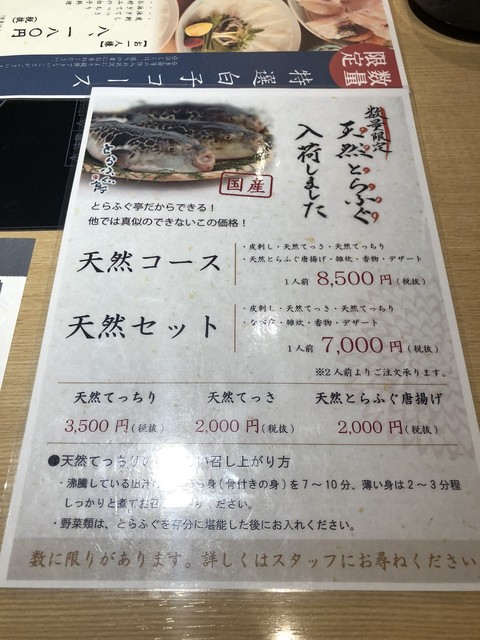 数量限定
特選 白子コース
八、一八〇円
(税抜)
【お一人様】
数量限定
天然とらふぐ
入荷しました
とらふぐ亭
国産
とらふぐ亭だからできる！
他では真似のできないこの価格！
天然コース
・皮刺し・天然てっさ・天然てっちり
・天然とらふぐ唐揚げ・雑炊・香物・デザート
1人前 8,500円(税抜)
天然セット
・皮刺し・天然てっさ・天然てっちり
・雑炊・香物・デザート
1人前 7,000円(税抜)
※2人前よりご注文承ります。
天然てっちり 天然てっさ 天然とらふぐ唐揚げ
3,500円(税抜) 2,000円(税抜) 2,000円(税抜)
天然てっちりの い召し上がり方
・沸騰している出汁の ら身(骨付きの身)を7〜10分、薄い身は2〜3分程
しっかりと煮てお召 ください。
・野菜類は、とらふぐを存分に堪能した後にお入れください。
数に限りがあります。詳しくはスタッフにお尋ねください